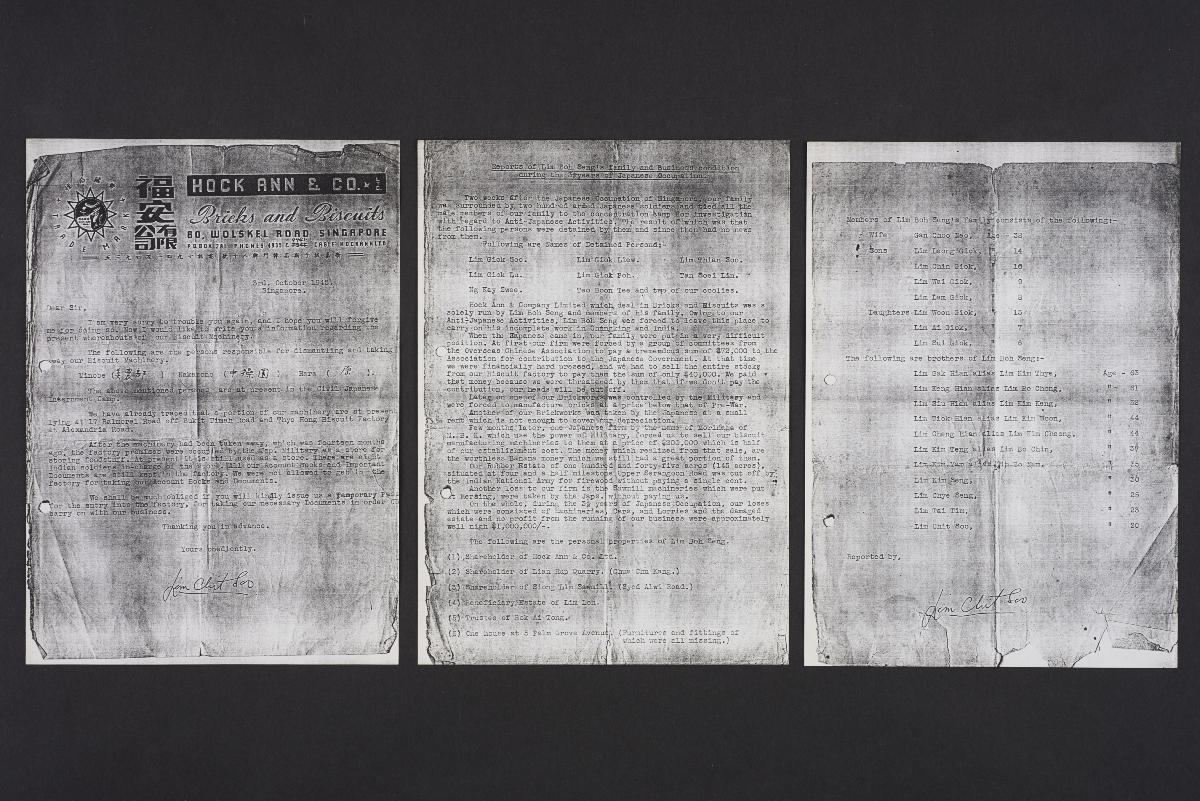 福安有限公司
HOCK ANN & CO. LTD
Bricks and Biscuits
80, WOLSKEL ROAD, SINGAPORE
TRADE MARK
3rd, October 1945.
Singapore.
Dear Sir,
I am very sorry to trouble you again, and I hope you will forgive
me for doing so. Now I would like to write you a information regarding the
present whereabouts of our Biscuit Machinery.
The following are the persons responsible for dismantling and taking
away our Biscuit Machinery:
Minobe Nakazono Hara
The above mentioned persons are at present in the Civil Japanese
Internment Camp.
We have already traced that a portion of our machinery are at present
lying at 17 Balmoral Road off Bukit Timah Road and Thye Hong Biscuit Factory
at Alexandria Road.
After the machinery had been taken away, which was fourteen months
ago, the factory premises were occupied by the Jap. Military as a store for
storing foodstuff. At present it is still used as a store. There are eight
Indian soldiers in-charge of the store. All our Account Books and Important
Documents are still kept in the factory. We are not allowed to get in the
factory for taking our Account Books and Documents.
We shall be much obliged if you will kindly issue us a Temporary Pass
for the entry into the factory, for taking our necessary Documents in order to
carry on with our business.
Thanking you in advance.
Yours obediently.
Lim Chit Soo
Reports of Lim Boh Seng's family and Business condition
during the 3½years of Japanese Occupation.
Two weeks after the Japanese Occupation of Singapore, our family
was surrounded by two hundred armed Japanese soldiers and they all the
male members of our family to the concentration camp for investigation
with regard to Anti-Japanese Activities. The result of which was that
the following persons were detained by them and since then had no news
from them.
Following are Names of Detained Persons:-
Lim Giok Soo. Lim Giok Liew. Lim Thian Soo.
Lim Giok Lu. Lim Giok Poh. Tan Soei Lin.
Ng Kay Swee. Teo Boon Tee and two of our coolies.
Hock Ann & Company Limited which deal in Bricks and Biscuits was
solely run by Lim Boh Seng and members of his family. Owing to our
Anti-Japanese Activities, Lim Boh Seng was forced to leave this place to
carry on his incomplete work in Chungking and India.
When the Japanese came in, our family were put in a very difficult
position. At first our firm were forced by a group of committees from
the Overseas Chinese Association to pay a tremendous sum of $72,000 to the
Association for contribution to the Japanese Government. At that time
we were financially hard pressed, and we had to sell the entire stocks
from our Biscuit factory to pay them the sum of only $40,000. We paid
that money because we were threatened by them that if we don't pay the
contribution, our heads will be cut off.
Later on one of our Brickworks was controlled by the Military and
were forced to manufacture bricks at a price below that of Pre-War.
Another of our Brickworks was taken by the Japanese at a small
rent which is not enough to cover our depreciation.
Few months later, one Japanese firm by the name of
which use the power of Military, forced us to sell our biscuit
manufacturing machineries to them at a price of $200,000 which is half
of our establishment cost. The money which realized from that sale, are
the worthless Banana money which we still had a great portion of them.
Our Rubber Estate of one hundred and forty-five acres (145 acres),
situated at four and a half milestone Upper Serangoon Road was cut off by
the Indian National Army for firewood without paying a single cent.
Another loss to our firm is the Sawmill machineries which were put
at Mersing, were taken by the Japs. without paying us.
On the whole, during the 3½ years of Japanese Occupation, our loses
which were consisted of Machineries, Cars, and Lorries and the damaged
estate and no profit from the running of our business were approximately
well nigh $1,000,000/-.
The following are the personal properties of Lim Boh Seng.
(1) Shareholder of Hock Ann & Co. Ltd.
(2) Shareholder of Lian Hup Quarry. (Chua Chu Kang.)
(3) Shareholder of Siong Lim Sawmill. (Syed Alwi Road.)
(4) Beneficiary Estate of Lim Loh.
(5) Trustee of Hok Ai Tong.
(6) One house at 3 Palm Grove Avenue. (Furnitures and fittings of
which were all missing.)
Members of Lim Boh Seng's family consists of the following:-
Wife Gan Choo Neo, Age - 38
Sons Lim Leong Giok, " 14
Lim Chin Giok, " 10
Lim Wei Giok, " 9
Lim Lam Giok, " 8
Daughters Lim Woon Giok, " 13
Lim Ai Giok, " 7
Lim Sui Giok, " 6
The following are brothers of Lim Boh Seng:-
Lim Gak Hian alias Lim Kim Thye, Age - 63
Lim Keng Hian alias Lim Bo Chong,
Lim Siu Hian alias Lim Kim Keng,
Lim Tiok Hian alias Lim Kim Woon, " 44
Lim Cheng Hian alias Lim Tin Cheong, " 44
Lim Kim Teng alias Lim Bo Chin,
Lim Kim Seng, " 30
Lim Chye Seng, " 25
Lim Tai Tim, " 23
Lim Chit Soo, " 20
Reported by,
Lim Chit Soo